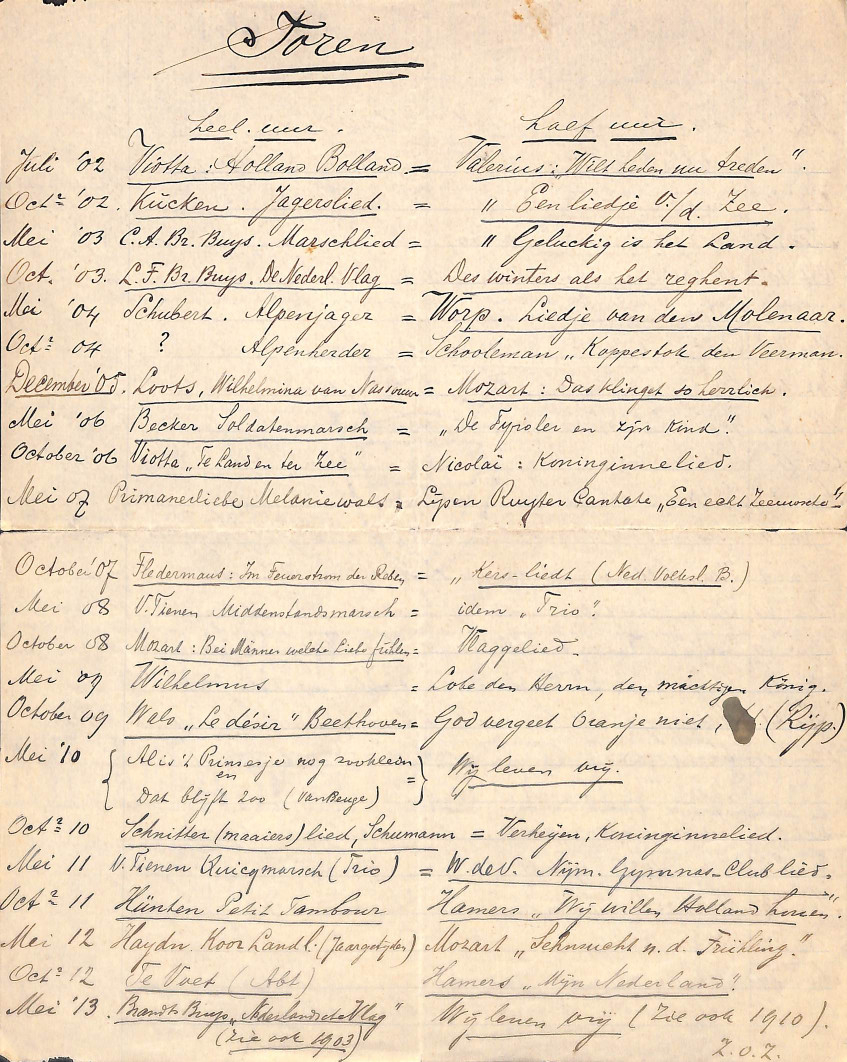 Toren
heel uur. half uur.
Juli '02 Viotta: Holland Bolland = Valerius: „Wilt heden nu treden".
Octr '02. Kücken. Jagerslied. = „ Een liedje v./d. Zee.
Mei '03 C.A. Br. Buys. Marschlied = „ Geluckig is het Land.
Oct. '03. L.F. Br. Buys. De Nederl. Vlag = Des winters als het reghent.
Mei '04 Schubert. Alpenjager = Worp. Liedje van den Molenaar.
Octr 04 ? Alpenherder = Schooleman „Koppestok den Veerman.
December '05. Loots, Wilhelmina van Nassouwe = Mozart: Das klinget so herrlich.
Mei '06 Becker Soldatenmarsch = „De Tyroler en zijn kind".
October '06 Viotta „Te Land en ter Zee" = Nicolaï: Koninginnelied.
Mei 07 Primanerliebe Melaniewals = Lijsen Ruyter Cantate „Een echt Zeeuwsche"
October '07 Fledermaus: Im Feuerstrom der Reben = „Kers-liedt (Ned. Volksl. B.)
Mei 08 V. Tienen Middenstandsmarsch = idem „Trio".
October 08 Mozart: Bei Männer welche Liebe fühlen = Vlaggelied.
Mei '09 Wilhelmus = Lobe den Herrn, den mächtigen König.
October 09 Wals „Le désir" Beethoven = God vergeet Oranje niet, (Rijp.)
Mei '10 { Al is 't Prinsesje nog zoo klein
en } = Wij leven vrij.
Dat blijft zoo (van Beuge)
Octr 10 Schnitter (maaiers) lied, Schumann = Verheyen, Koninginnelied.
Mei 11 V. Tienen Quicqmarsch (Trio) = W. de V. Nijm. Gymnas-Club lied.
Octr 11 Hünten Petit Tambour Hamers „Wij willen Holland houen".
Mei 12 Haydn. Koor Landl. (Jaargetijden) Mozart „Sehnsucht n. d. Frühling."
Octr 12 Te Voet (Abt) Hamers „Mijn Nederland".
Mei '13. Brandts Buys „Nederlandsche Vlag" Wij leven vrij (Zie ook 1910).
(Zie ook 1903) Z.O.Z.